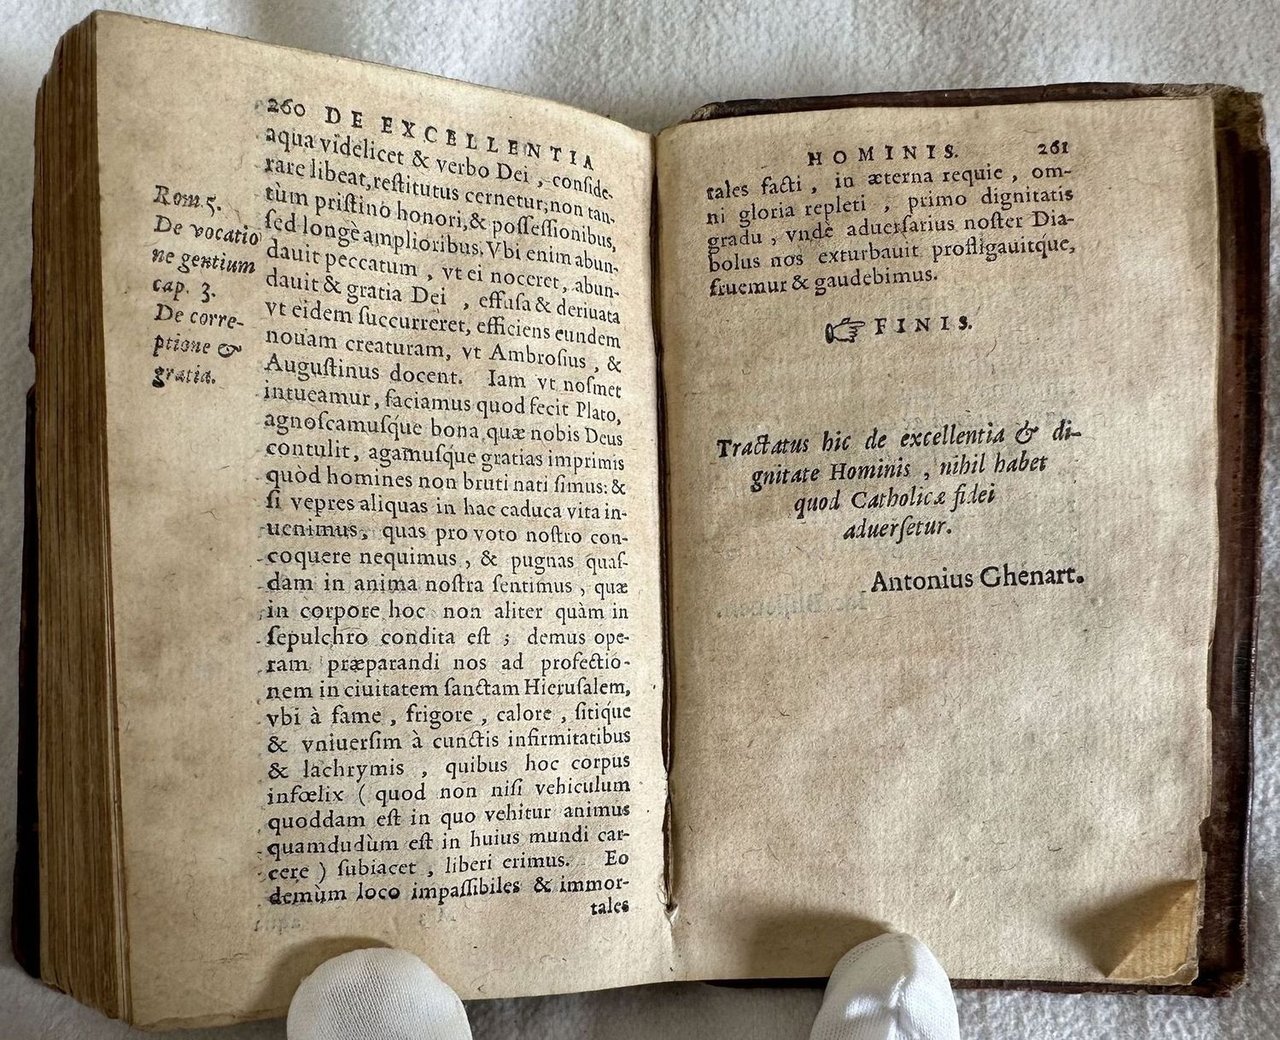 260 DE EXCELLENTIA
aqua videlicet & verbo Dei , conside-
rare libeat, restitutus cernetur, non tan-
tùm pristino honori, & possessionibus,
sed longè amplioribus. Vbi enim abun-
dauit peccatum , vt ei noceret, abun-
dauit & gratia Dei , effusa & deriuata
vt eidem succurreret, efficiens eundem
nouam creaturam, vt Ambrosius , &
Augustinus docent. Iam vt nosmet
intueamur, faciamus quod fecit Plato,
agnoscamusque bona quæ nobis Deus
contulit, agamusque gratias imprimis
quòd homines non bruti nati simus: &
si vepres aliquas in hac caduca vita in-
uenimus, quas pro voto nostro con-
coquere nequimus , & pugnas quas-
dam in anima nostra sentimus , quæ
in corpore hoc non aliter quàm in
sepulchro condita est ; demus ope-
ram præparandi nos ad profectio-
nem in ciuitatem sanctam Hierusalem,
vbi à fame , frigore , calore , sitique
& vniuersim à cunctis infirmitatibus
& lachrymis , quibus hoc corpus
infœlix ( quod non nisi vehiculum
quoddam est in quo vehitur animus
quamdudùm est in huius mundi car-
cere ) subiacet , liberi erimus. Eo
demùm loco impassibiles & immor-
tales
Rom. 5.
De vocatio
ne gentium
cap. 3.
De corre-
ptione &
gratia.
HOMINIS. 261
tales facti , in æterna requie , om-
ni gloria repleti , primo dignitatis
gradu , vndè aduersarius noster Dia-
bolus nos exturbauit profligauitque,
fruemur & gaudebimus.
☞ FINIS.
Tractatus hic de excellentia & di-
gnitate Hominis , nihil habet
quod Catholicæ fidei
aduersetur.
Antonius Ghenart.